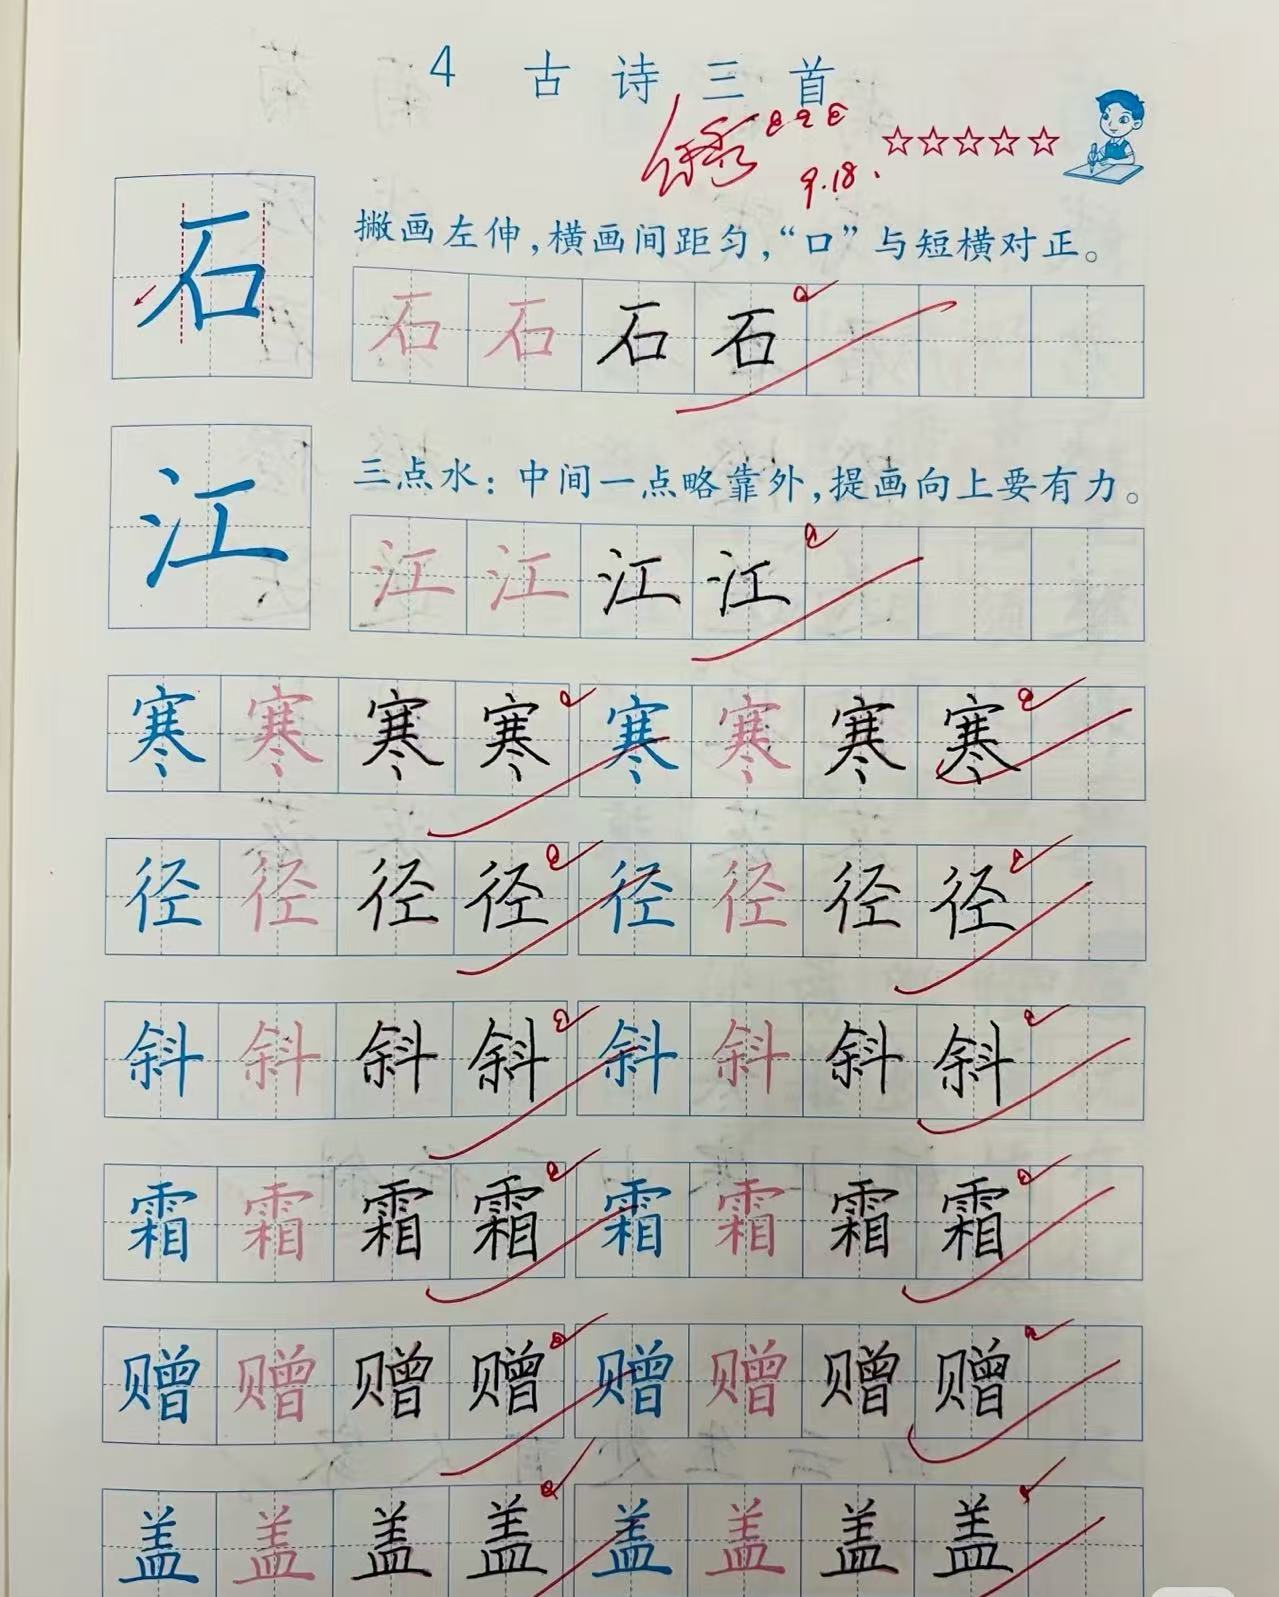 4 古诗三首
优
9.18.
石
撇画左伸，横画间距匀，“口”与短横对正。
石 石 石 石
江
三点水：中间一点略靠外，提画向上要有力。
江 江 江 江
寒 寒 寒 寒 寒 寒 寒 寒
径 径 径 径 径 径 径 径
斜 斜 斜 斜 斜 斜 斜 斜
霜 霜 霜 霜 霜 霜 霜 霜
赠 赠 赠 赠 赠 赠 赠 赠
盖 盖 盖 盖 盖 盖 盖 盖